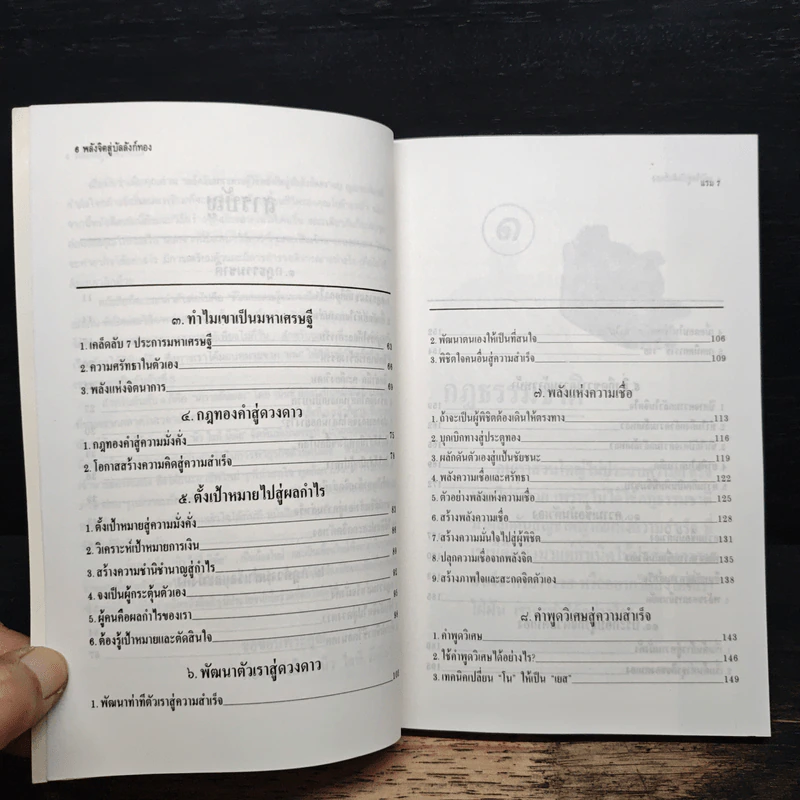 6 พลังจิตสู่บัลลังก์ทอง
๓. ทำไมเขาเป็นมหาเศรษฐี
1. เคล็ดลับ 7 ประการมหาเศรษฐี 63
2. ความศรัทธาในตัวเอง
3. พลังแห่งจิตนาการ 69
๔. กฎทองคำสู่ดวงดาว
1. กฎทองคำสู่ความมั่งคั่ง 75
2. โอกาสสร้างความคิดสู่ความสำเร็จ
๕. ตั้งเป้าหมายไปสู่ผลกำไร
1. ตั้งเป้าหมายสู่ความมั่งคั่ง
2. วิเคราะห์เป้าหมายการเงิน
3. สร้างความชำนิชำนาญสู่กำไร
4. จงเป็นผู้กระตุ้นตัวเอง
5. ผู้คนคือผลกำไรของเรา
6. ต้องรู้เป้าหมายและตัดสินใจ
๖. พัฒนาตัวเราสู่ดวงดาว
1. พัฒนาท่าทีตัวเราสู่ความสำเร็จ
แรม 7
2. พัฒนาตนเองให้เป็นที่สนใจ 106
3. พิชิตใจคนอื่นสู่ความสำเร็จ 109
๗. พลังแห่งความเชื่อ
1. ถ้าจะเป็นผู้พิชิตต้องเดินให้ตรงทาง 113
2. บุกเบิกทางสู่ประตูทอง 116
3. ผลักดันตัวเองสู่แป้นชัยชนะ 119
4. พลังความเชื่อและศรัทธา 122
5. ตัวอย่างพลังแห่งความเชื่อ 125
6. สร้างพลังความเชื่อ 128
7. สร้างความมั่นใจไปสู่ผู้พิชิต 131
8. ปลุกความเชื่อจากพลังจิต 135
9. สร้างภาพใจและสะกดจิตตัวเอง 138
๘. คำพูดวิเศษสู่ความสำเร็จ
1. คำพูดวิเศษ 143
2. ใช้คำพูดวิเศษได้อย่างไร? 146
3. เทคนิคเปลี่ยน "โน" ให้เป็น "เยส" 149